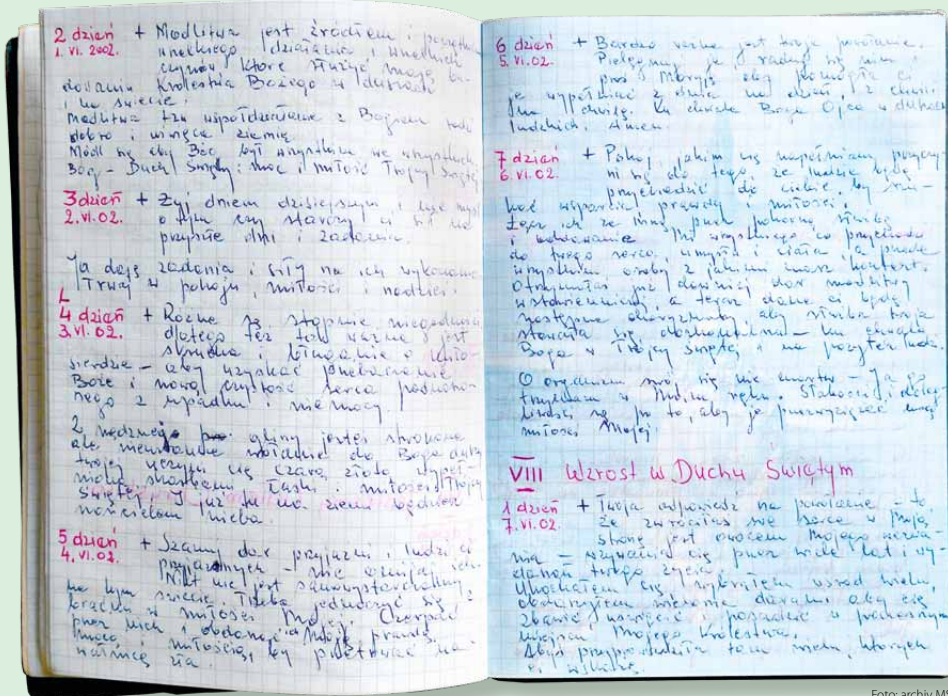 2 dzień + Modlitwa jest źródłem i
1. VI. 2002. wielkiego działania i wielkich
czynów które służyć mają
Królestwa Bożego w duszach
i na świecie.
Modlitwa to współdziałanie z Bogiem rodzi
dobro i uświęca ziemię.
Módl się aby Bóg był wszystkim we wszystkich
Bóg – Duch Święty: moc i miłość Trójcy Świętej
3 dzień + Żyj dniem dzisiejszym i nie myśl
2. VI. 02. o tym czy starczy ci sił na
przyszłe dni i zadania.
Ja daję zadania i siły na ich wykonanie
Trwaj w pokoju, miłości i nadziei.
4 dzień + Różne są stopnie
3. VI. 02. dlatego też tak ważna jest
skrucha i błaganie o miło-
sierdzie – aby uzyskać przebaczenie
Boże i nową czystość serca podniesio-
nego z upadku i niemocy
Z nędznego gliny jesteś stworzona
ale nieustanne wołanie do Boga duszy
twojej uczyni cię czarą złotą wypeł-
nioną skarbami łaski i miłości Trójcy
Świętej. I już tu na ziemi będziesz
nosicielem nieba.
5 dzień + Szanuj dar przyjaźni i ludzi ci
4. VI. 02. przyjaznych – nie
Nikt nie jest samowystarczalny
na tym świecie. Trzeba jednoczyć się z
braćmi w miłości Mojej. Czerpać
przez nich i obdarzać Moją prawdą,
mocą i miłością, by przetrwać na-
wałnicę zła.
6 dzień + Bardzo ważne jest twoje powołanie.
5. VI. 02. Pielęgnuj je i raduj się nim i
proś Maryję aby pomogła ci
je wypełniać z dnia na dzień i z chwili
na chwilę. Ku chwale Boga Ojca w duszach
ludzkich. Amen.
7 dzień + Pokój, jakim cię napełniam przyczy-
6. VI. 02. ni się do tego, że ludzie będą
przychodzić do ciebie, by szu-
kać wsparcia prawdy i miłości.
ich ze mną przez pokorną służbę
i oddawanie Mi wszystkiego co przychodzi
do twego serca, umysłu i ciała a przede
wszystkim osoby z jakimi masz kontakt.
Otrzymałaś już dawniej dar modlitwy
wstawienniczej, a teraz dane ci będą
następne aby służba twoja
stawała się doskonalsza – ku chwale
Boga w Trójcy Świętej i na pożytek ludzi.
O organizm swój się nie martw – Ja go
trzymam w Moim ręku. Słabości i
są po to, aby je przezwyciężać
miłości Mojej.
VIII Wzrost w Duchu Świętym
1 dzień + Twoja odpowiedź na powołanie – to
7. VI. 02. że zwróciłaś swe serce w Moją
stronę jest owocem Mojego wezwa-
nia – wzywania cię przez wiele lat i
twego życia.
Umiłowałem cię i wybrałem wśród wielu,
obdarzyłem darami aby cię
zbawić i uświęcić i posadzić w
miejscu Mojego Królestwa.
Abyś przyprowadziła tam wielu, których
ci wskażę.
Foto: archiv